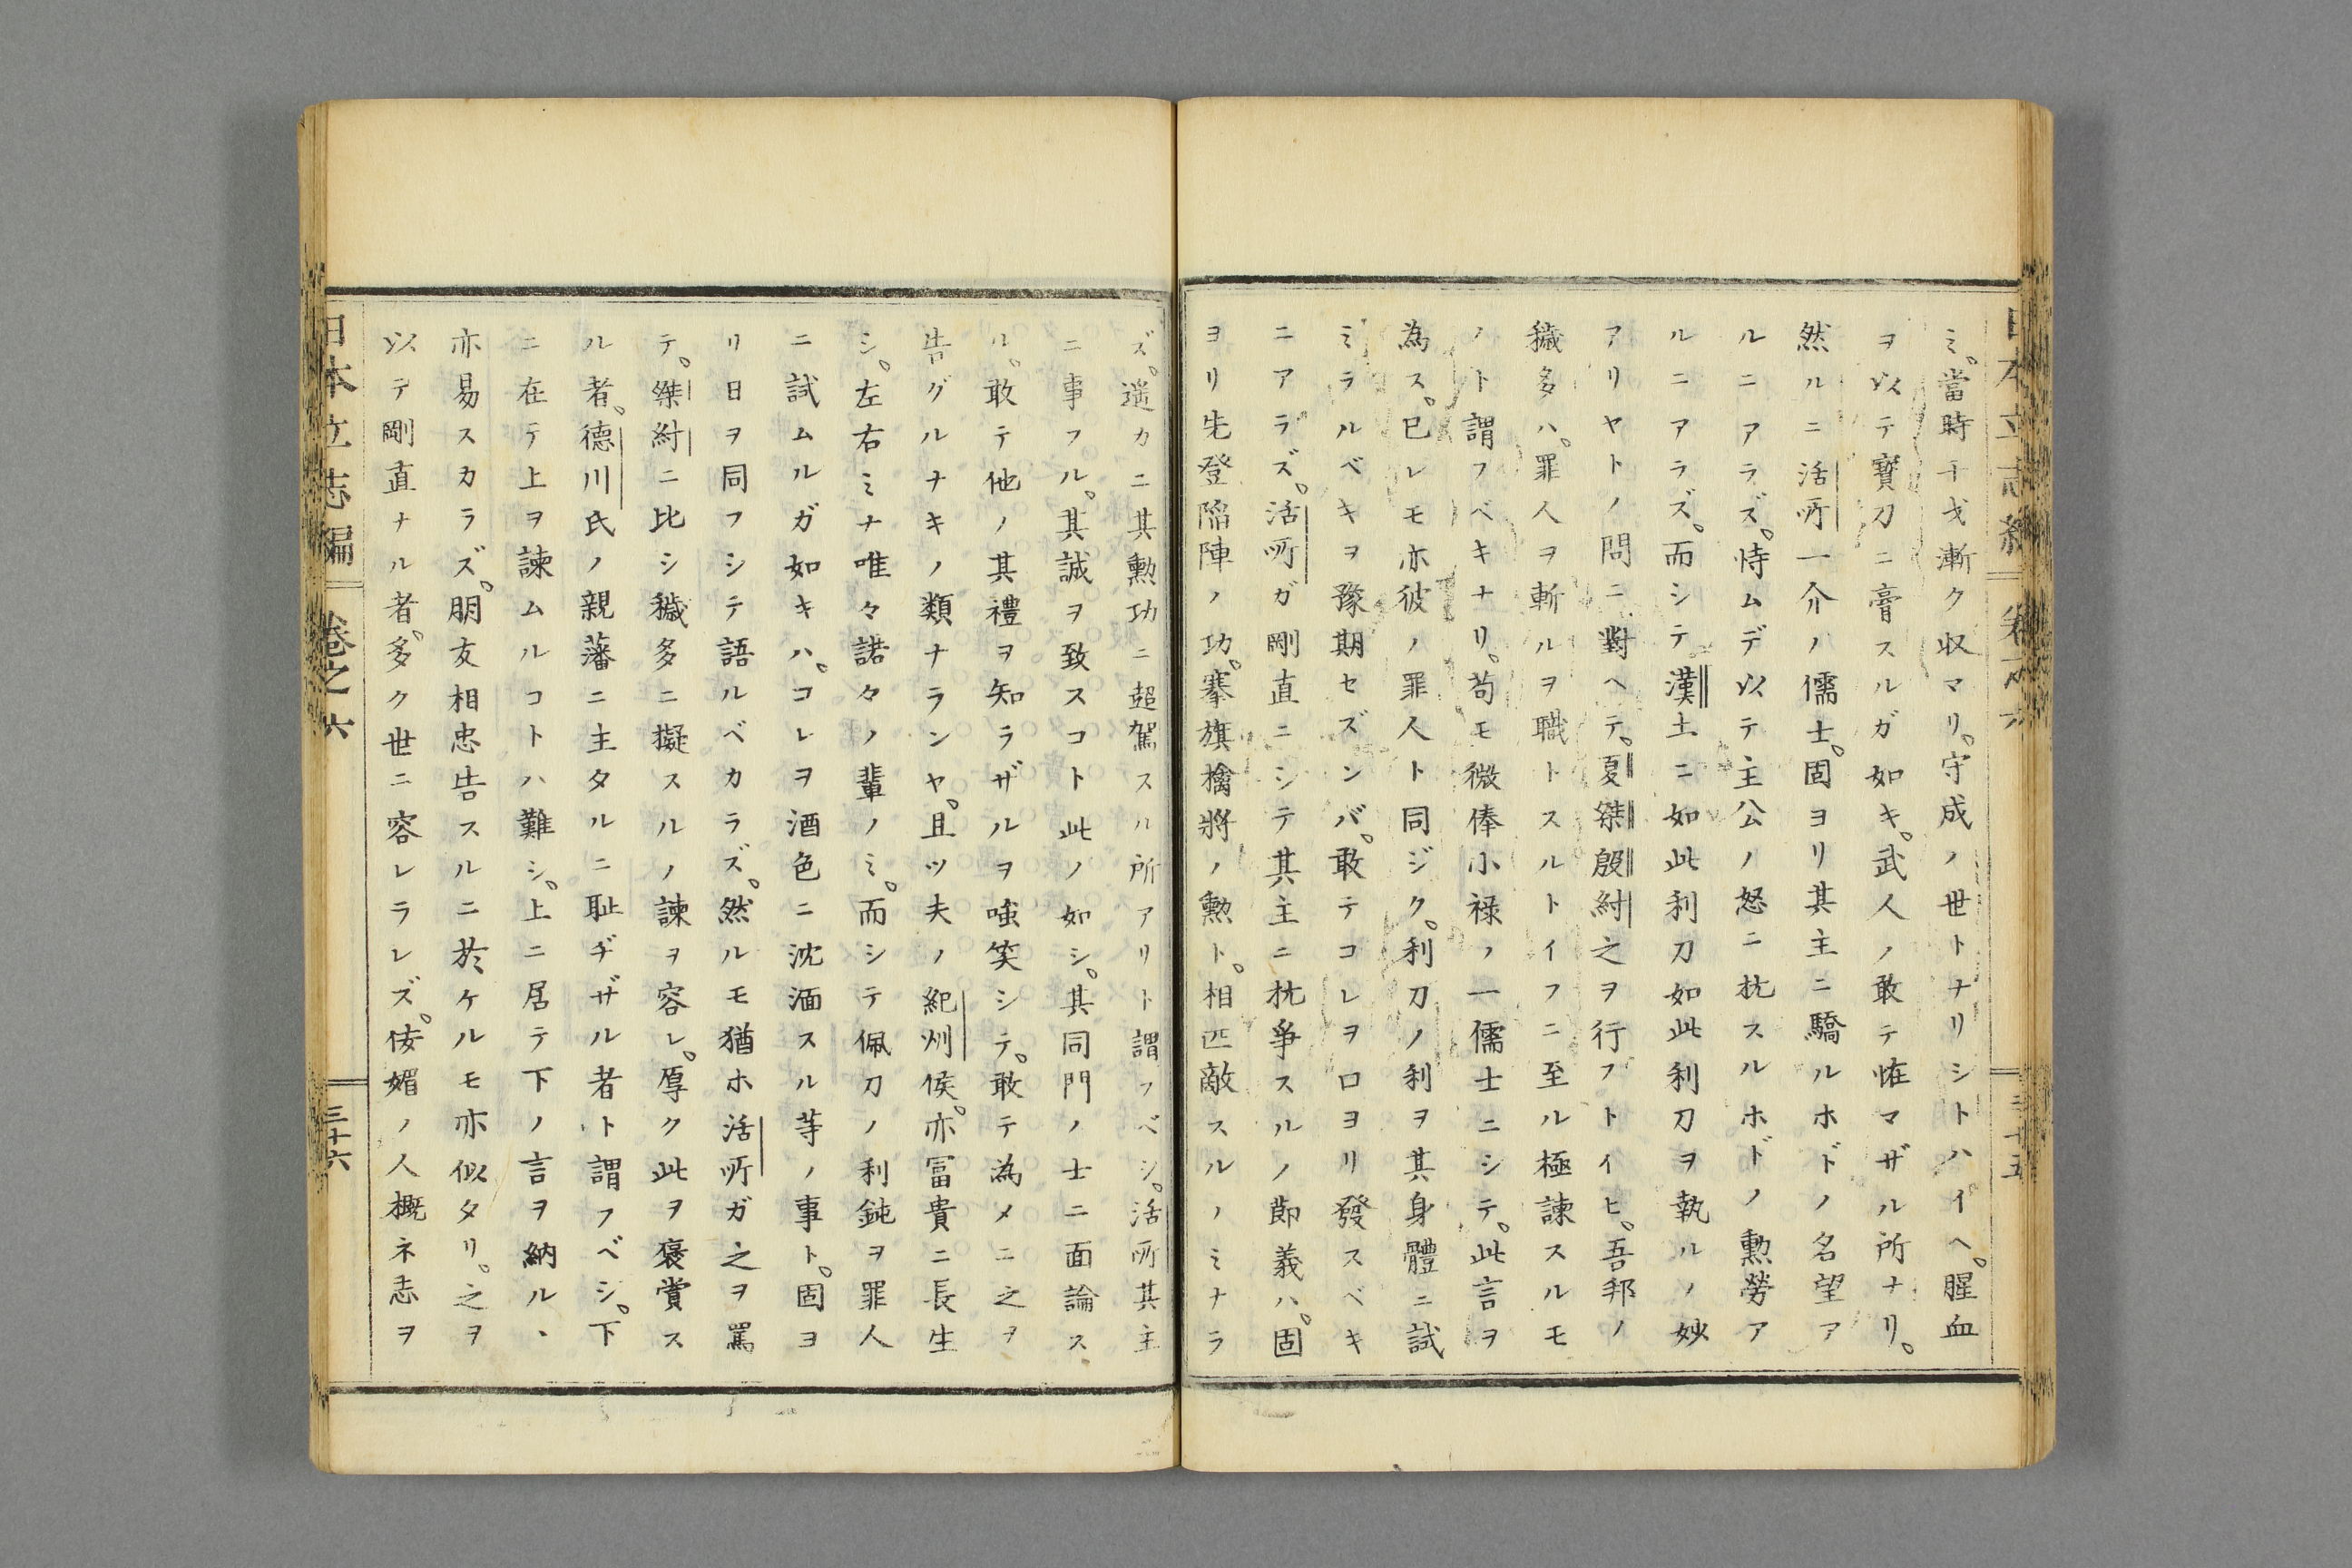 ミ。當時干戈漸ク収マリ。守成ノ世トナリシトハイヘ。腥血
ヲ以テ寶刀ニ膏スルガ如キ。武人ノ敢テ恠マザル所ナリ。
然ルニ活所一介ノ儒士。固ヨリ其主ニ驕ルホドノ名望ア
ルニアラズ。恃ムデ以テ主公ノ怒ニ抗スルホドノ勲勞ア
ルニアラズ。而シテ漢土ニ如此利刀如此利刀ヲ執ルノ妙
アリヤトノ問ニ對ヘテ。夏桀殷紂之ヲ行フトイヒ。吾邦ノ
穢多ハ。罪人ヲ斬ルヲ職トスルトイフニ至ル極諫スルモ
ノト謂フベキナリ。苟モ微俸小禄ノ一儒士ニシテ。此言ヲ
為ス。已レモ亦彼ノ罪人ト同ジク。利刀ノ利ヲ其身體ニ試
ミラルベキヲ豫期セズンバ。敢テコレヲロヨリ發スベキ
ニアラズ。活所ガ剛直ニシテ其主ニ抗爭スルノ節義ハ。固
ヨリ先登陥陣ノ功。搴旗擒將ノ勲ト。相匹敵スルノミナラ
日本立志編 卷之六 三十五
ズ。遥カニ其勲功ニ超駕スル所アリト謂フベシ。活所其主
ニ事フル。其誠ヲ致スコト此ノ如シ。其同門ノ士ニ面論ス
ル。敢テ他ノ其禮ヲ知ラザルヲ嗤笑シテ。敢テ為メニ之ヲ
告グルナキノ類ナランヤ。且ツ夫ノ紀州侯。亦冨貴ニ長生
シ。左右ミナ唯々諾々ノ輩ノミ。而シテ佩刀ノ利鈍ヲ罪人
ニ試ムルガ如キハ。コレヲ酒色ニ沈湎スル等ノ事ト。固ヨ
リ日ヲ同フシテ語ルベカラズ。然ルモ猶ホ活所ガ之ヲ罵
テ。桀紂ニ比シ穢多ニ擬スルノ諫ヲ容レ。厚ク此ヲ褒賞ス
ル者。德川氏ノ親藩ニ主タルニ耻ヂザル者ト謂フベシ。下
ニ在テ上ヲ諫ムルコトハ難シ。上ニ居テ下ノ言ヲ納ルヽ
亦易スカラズ。朋友相忠告スルニ於ケルモ亦似タリ。之ヲ
以テ剛直ナル者。多ク世ニ容レラレズ。侫媚ノ人概ネ志ヲ
日本立志編 卷之六 三十六